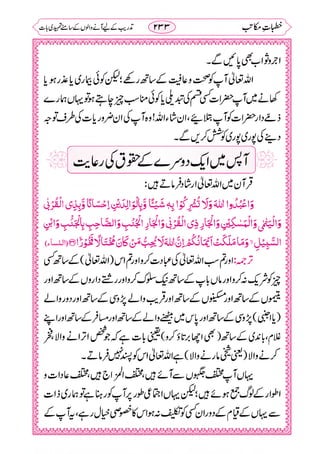 خطباتِ مکاتب ۲۳۳ تدریب کے لیے آنے والوں کے سامنے تمہیدی بات
اجر و ثواب بھی پائیں گے۔
اللہ تعالیٰ آپ کو صحت و عافیت کے ساتھ رکھے؛ لیکن کوئی بیماری ہو یا
کھانے میں آپ حضرات کسی قسم کی تبدیلی یا کوئی مناسب چیز چاہتے ہو تو یہاں ہمارے
ذمے دار حضرات کو آپ بتلائیے، ان شاء اللہ! وہ آپ کی ان ضروریات کی طرف توجہ
دینے کی پوری پوری کوشش کریں گے۔
آپس میں ایک دوسرے کے حقوق کی رعایت
قرآن میں اللہ تعالیٰ ارشاد فرماتے ہیں:
وَاعْبُدُوا اللهَ وَلَا تُشْرِكُوْا بِهٖ شَيْئًا وَّبِالْوَالِدَيْنِ اِحْسَانًا وَّبِذِى الْقُرْبٰى
وَالْيَتٰمٰى وَالْمَسٰكِيْنِ وَالْجَارِ ذِى الْقُرْبٰى وَالْجَارِ الْجُنُبِ وَالصَّاحِبِ بِالْجَنْۢبِ وَابْنِ
السَّبِيْلِ ۙ وَمَا مَلَكَتْ اَيْمَانُكُمْ ؕ اِنَّ اللهَ لَا يُحِبُّ مَنْ كَانَ مُخْتَالًا فَخُوْرًا ﴿۳۶﴾ (النساء)
ترجمہ: اور تم سب اللہ تعالیٰ کی عبادت کرو اور تم اس (اللہ تعالیٰ) کے ساتھ کسی
چیز کو شریک نہ کرو اور ماں باپ کے ساتھ نیک سلوک کرو اور رشتے داروں کے ساتھ اور
یتیموں کے ساتھ اور مسکینوں کے ساتھ اور قریب والے پڑوسی کے ساتھ اور دور والے
(یا اجنبی) پڑوسی کے ساتھ اور پاس میں بیٹھنے والے کے ساتھ اور مسافر کے ساتھ اور اپنے
غلام، باندی کے ساتھ (بھی اچھا برتاؤ کرو) یقینی بات ہے کہ جو شخص اترانے والا، فخر
کرنے والا (یعنی شیخی مارنے والا) ہے اللہ تعالیٰ اس کو پسند نہیں فرماتے۔
یہاں آپ مختلف جگہوں سے آئے ہیں، مختلف المزاج ہیں، مختلف عادات و
اطوار کے لوگ جمع ہوئے ہیں؛ لیکن یہاں اجتماعی طور پر آپ کو رہنا ہے تو ہماری ذات
سے یہاں کے قیام کے دوران کسی کو تکلیف نہ ہو اس کا خصوصی خیال رہے، یہ آپ کے